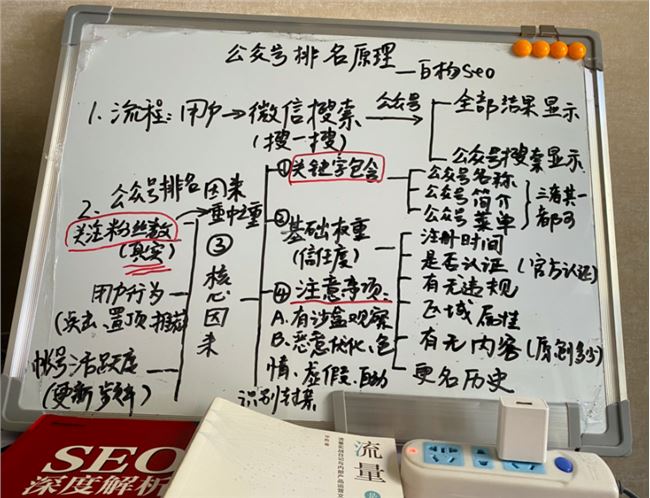 公众号排名原理—百构seo
1. 流程：用户→微信搜索
(搜一搜)
公众号
全部结果显示
公众号搜索显示
2、公众号排名因素
①关键字包含
公众号名称
公众号简介
公众号菜单
三者其一
都可
②基础权重
(信任度)
注册时间
是否认证(官方认证)
有无违规
区域属性
有无内容(原创多少)
更名历史
③核心因素
重中之重
关注粉丝数
(真实)
用户行为
(点击、置顶、推荐)
帐号活跃度
(更新频率)
④注意事项、
A.有沙盒观察
B.恶意优化、色
情、虚假、自动
识别封禁
SEO
深度解析
流量